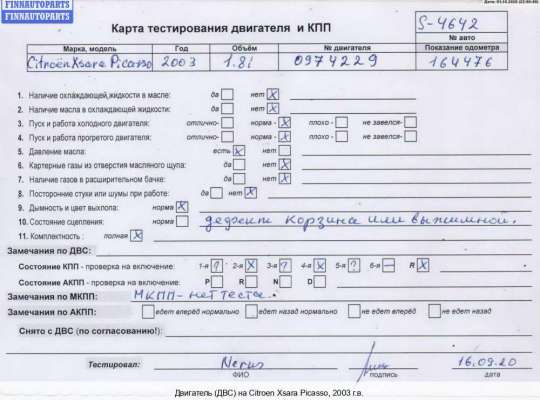 FINNAUTOPARTS
FINNAUTOPARTS
Карта тестирования двигателя и КПП
S-4642
№ авто
Марка, модель Год Объём № двигателя Показание одометра
Citroën Xsara Picasso 2003 1.8i 0974229 164476
1. Наличие охлаждающей жидкости в масле: да нет X
2. Наличие масла в охлаждающей жидкости: да нет X
3. Пуск и работа холодного двигателя: отлично- норма - X плохо - не завелся-
4. Пуск и работа прогретого двигателя: отлично- норма - X плохо - не завелся-
5. Давление масла: есть X нет
6. Картерные газы из отверстия масляного щупа: да нет X
7. Наличие газов в расширительном бачке: да нет X
8. Посторонние стуки или шумы при работе: да нет X
9. Дымность и цвет выхлопа: норма X
10. Состояние сцепления: норма дефект корзина или выжимной.
11. Комплектность : полная X
Замечания по ДВС:
Состояние КПП - проверка на включение: 1-я ? 2-я X 3-я ? 4-я X 5-я ? 6-я — R X
Состояние АКПП - проверка на включение: P R N D
Замечания по МКПП: МКПП - нет теста.
Замечания по АКПП: едет вперед нормально едет назад нормально не едет вперёд не едет назад
Снято с ДВС (по согласованию!):
Тестировал: 16.09.20
ФИО подпись дата
Двигатель (ДВС) на Citroen Xsara Picasso, 2003 г.в.